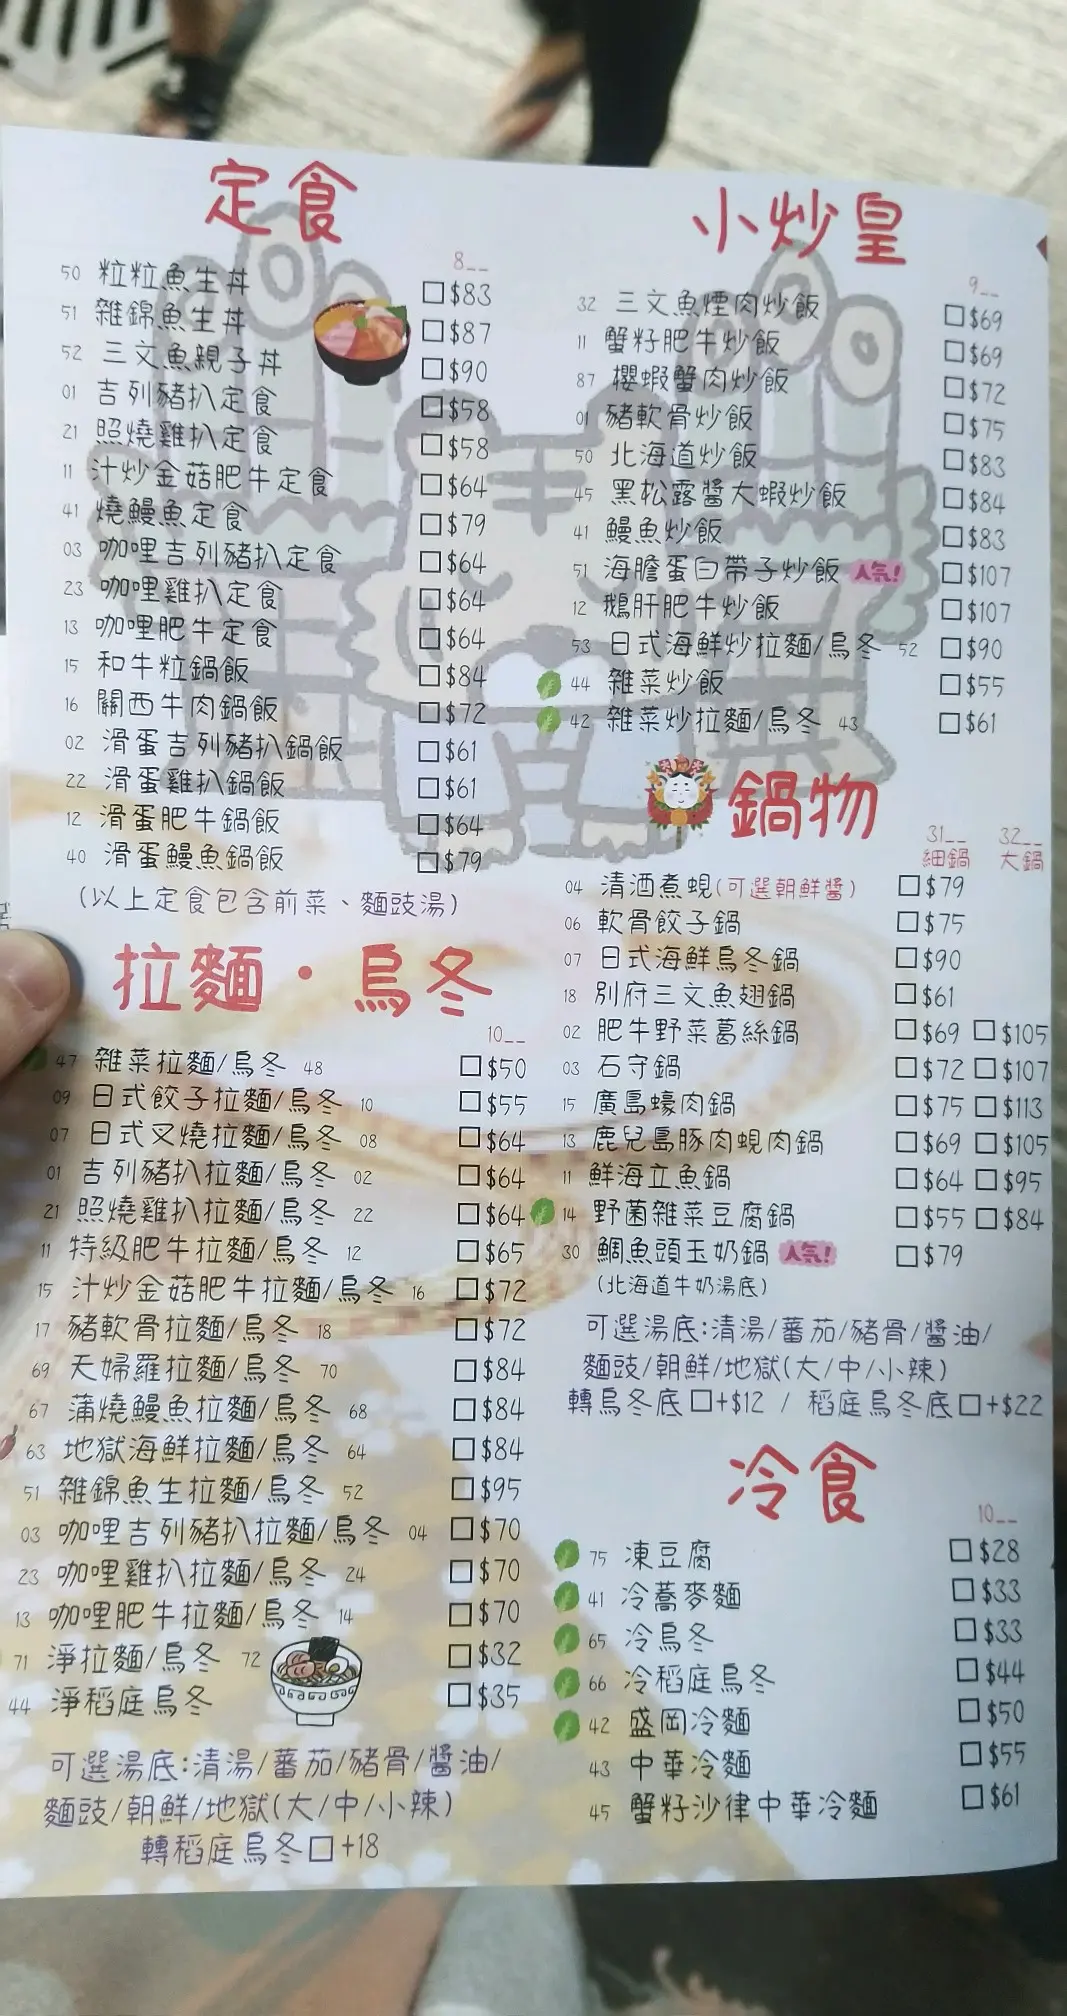 定食
8__
50 粒粒魚生丼 □$83
51 雜錦魚生丼 □$87
52 三文魚親子丼 □$90
01 吉列豬扒定食 □$58
21 照燒雞扒定食 □$58
11 汁炒金菇肥牛定食 □$64
41 燒鰻魚定食 □$79
03 咖哩吉列豬扒定食 □$64
23 咖哩雞扒定食 □$64
13 咖哩肥牛定食 □$64
15 和牛粒鍋飯 □$84
16 關西牛肉鍋飯 □$72
02 滑蛋吉列豬扒鍋飯 □$61
22 滑蛋雞扒鍋飯 □$61
12 滑蛋肥牛鍋飯 □$64
40 滑蛋鰻魚鍋飯 □$79
(以上定食包含前菜、麵豉湯)
拉麵・烏冬
10__
47 雜菜拉麵/烏冬 48 □$50
09 日式餃子拉麵/烏冬 10 □$55
07 日式叉燒拉麵/烏冬 08 □$64
01 吉列豬扒拉麵/烏冬 02 □$64
21 照燒雞扒拉麵/烏冬 22 □$64
11 特級肥牛拉麵/烏冬 12 □$65
15 汁炒金菇肥牛拉麵/烏冬 16 □$72
17 豬軟骨拉麵/烏冬 18 □$72
69 天婦羅拉麵/烏冬 70 □$84
67 蒲燒鰻魚拉麵/烏冬 68 □$84
63 地獄海鮮拉麵/烏冬 64 □$84
51 雜錦魚生拉麵/烏冬 52 □$95
03 咖哩吉列豬扒拉麵/烏冬 04 □$70
23 咖哩雞扒拉麵/烏冬 24 □$70
13 咖哩肥牛拉麵/烏冬 14 □$70
71 淨拉麵/烏冬 72 □$32
44 淨稻庭烏冬 □$35
可選湯底:清湯/蕃茄/豬骨/醬油/
麵豉/朝鮮/地獄(大/中/小辣)
轉稻庭烏冬□+18
小炒皇
9__
32 三文魚煙肉炒飯 □$69
11 蟹籽肥牛炒飯 □$69
87 櫻蝦蟹肉炒飯 □$72
01 豬軟骨炒飯 □$75
50 北海道炒飯 □$83
45 黑松露醬大蝦炒飯 □$84
41 鰻魚炒飯 □$83
51 海膽蛋白帶子炒飯 人気! □$107
12 鵝肝肥牛炒飯 □$107
53 日式海鮮炒拉麵/烏冬 52 □$90
44 雜菜炒飯 □$55
42 雜菜炒拉麵/烏冬 43 □$61
鍋物
31__ 32__
細鍋 大鍋
04 清酒煮蜆(可選朝鮮醬) □$79
06 軟骨餃子鍋 □$75
07 日式海鮮烏冬鍋 □$90
18 別府三文魚翅鍋 □$61
02 肥牛野菜葛絲鍋 □$69 □$105
03 石守鍋 □$72 □$107
15 廣島蠔肉鍋 □$75 □$113
13 鹿兒島豚肉蜆肉鍋 □$69 □$105
11 鮮海立魚鍋 □$64 □$95
14 野菌雜菜豆腐鍋 □$55 □$84
30 鯛魚頭玉奶鍋 人気! □$79
(北海道牛奶湯底)
可選湯底:清湯/蕃茄/豬骨/醬油/
麵豉/朝鮮/地獄(大/中/小辣)
轉烏冬底□+$12 / 稻庭烏冬底□+$22
冷食
10__
75 凍豆腐 □$28
41 冷蕎麥麵 □$33
65 冷烏冬 □$33
66 冷稻庭烏冬 □$44
42 盛岡冷麵 □$50
43 中華冷麵 □$55
45 蟹籽沙律中華冷麵 □$61